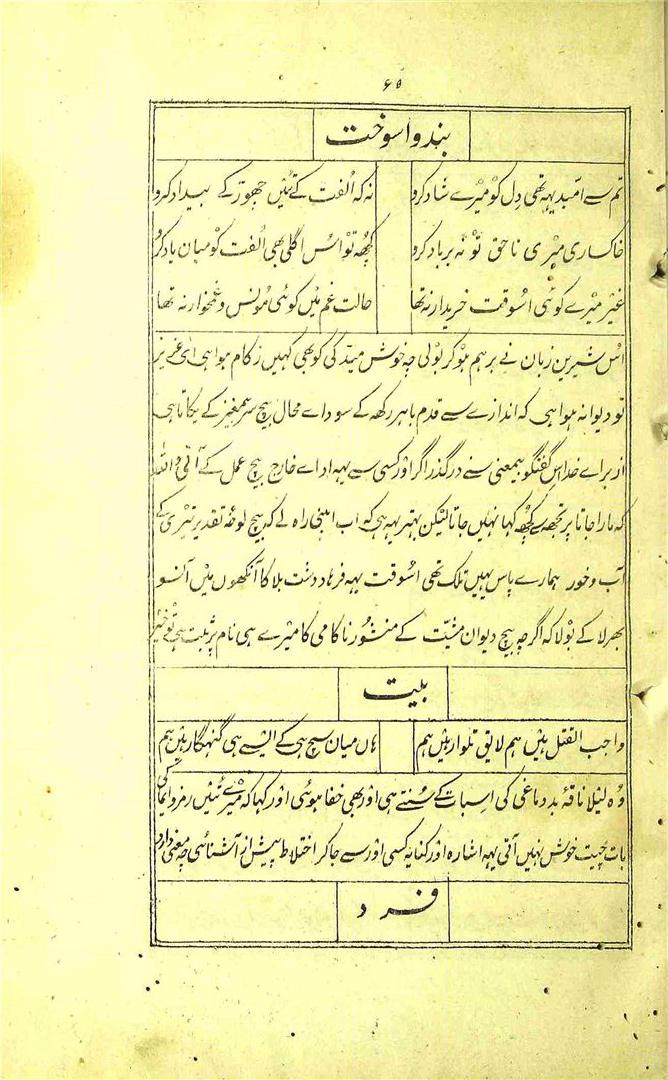 ۶۵
بند واسوخت
تم سے امید یہہ تھی دل کو میرے شاد کرو نہ کہ الفت کے تئیں چھوڑ کے بیداد کرو
خاکساری میری ناحق تو نہ برباد کرو کچھہ تو اس اگلی بھی الفت کو میان یاد کرو
غیر میرے کوئی اسوقت خریدار نہ تھا حالت غم میں کوئی مونس و غمخوار نہ تھا
اس شیرین زبان نے برہم ہو کر بولی چہ خوش میندکی کو بھی کہیں زکام ہوا ہی ای عزیز
تو دیوانہ ہوا ہی کہ اندازے سے قدم باہر رکھہ کے سوداے محال بیچ سر بیمغز کے پکاتا ہی
از براے خدا اس گفتگو بیمعنی سے درگذر اگر اور کسی سے یہہ اداے خارج بیچ عمل کے آتی واللہ
کہ مارا جاتا پر تجھہ سے کچھہ کہا نہیں جاتا لیکن بہتر یہہ ہی کہ اب اپنی راہ لے کہ بیچ لوحۂ تقدیر تیری کے
آب و خور ہمارے پاس یہیں تلک تھی اسوقت یہہ فرہاد دشت بلا کا آنکھوں میں آنسو
بھر لا کے بولا کہ اگرچہ بیچ دیوان مشیّت کے منشور ناکامی کا میرے ہی نام پر ثبت ہی تو خیر
بیت
واجب القتل ہیں ہم لایق تلوار ہیں ہم ہاں میان سچ ہی کے ایسے ہی گنہگار ہیں ہم
وہ لیلا ناقۂ بد دماغی کی اسبات کے سنتے ہی اور بھی خفا ہوئی اور کہا کہ میرے تئیں رمز و ایما کی
بات چیت خوش نہیں آتی یہہ اشارہ اور کنایہ کسی اور سے جا کر اختلاط پیش از آشنائی چہ معنی دارد
فرد